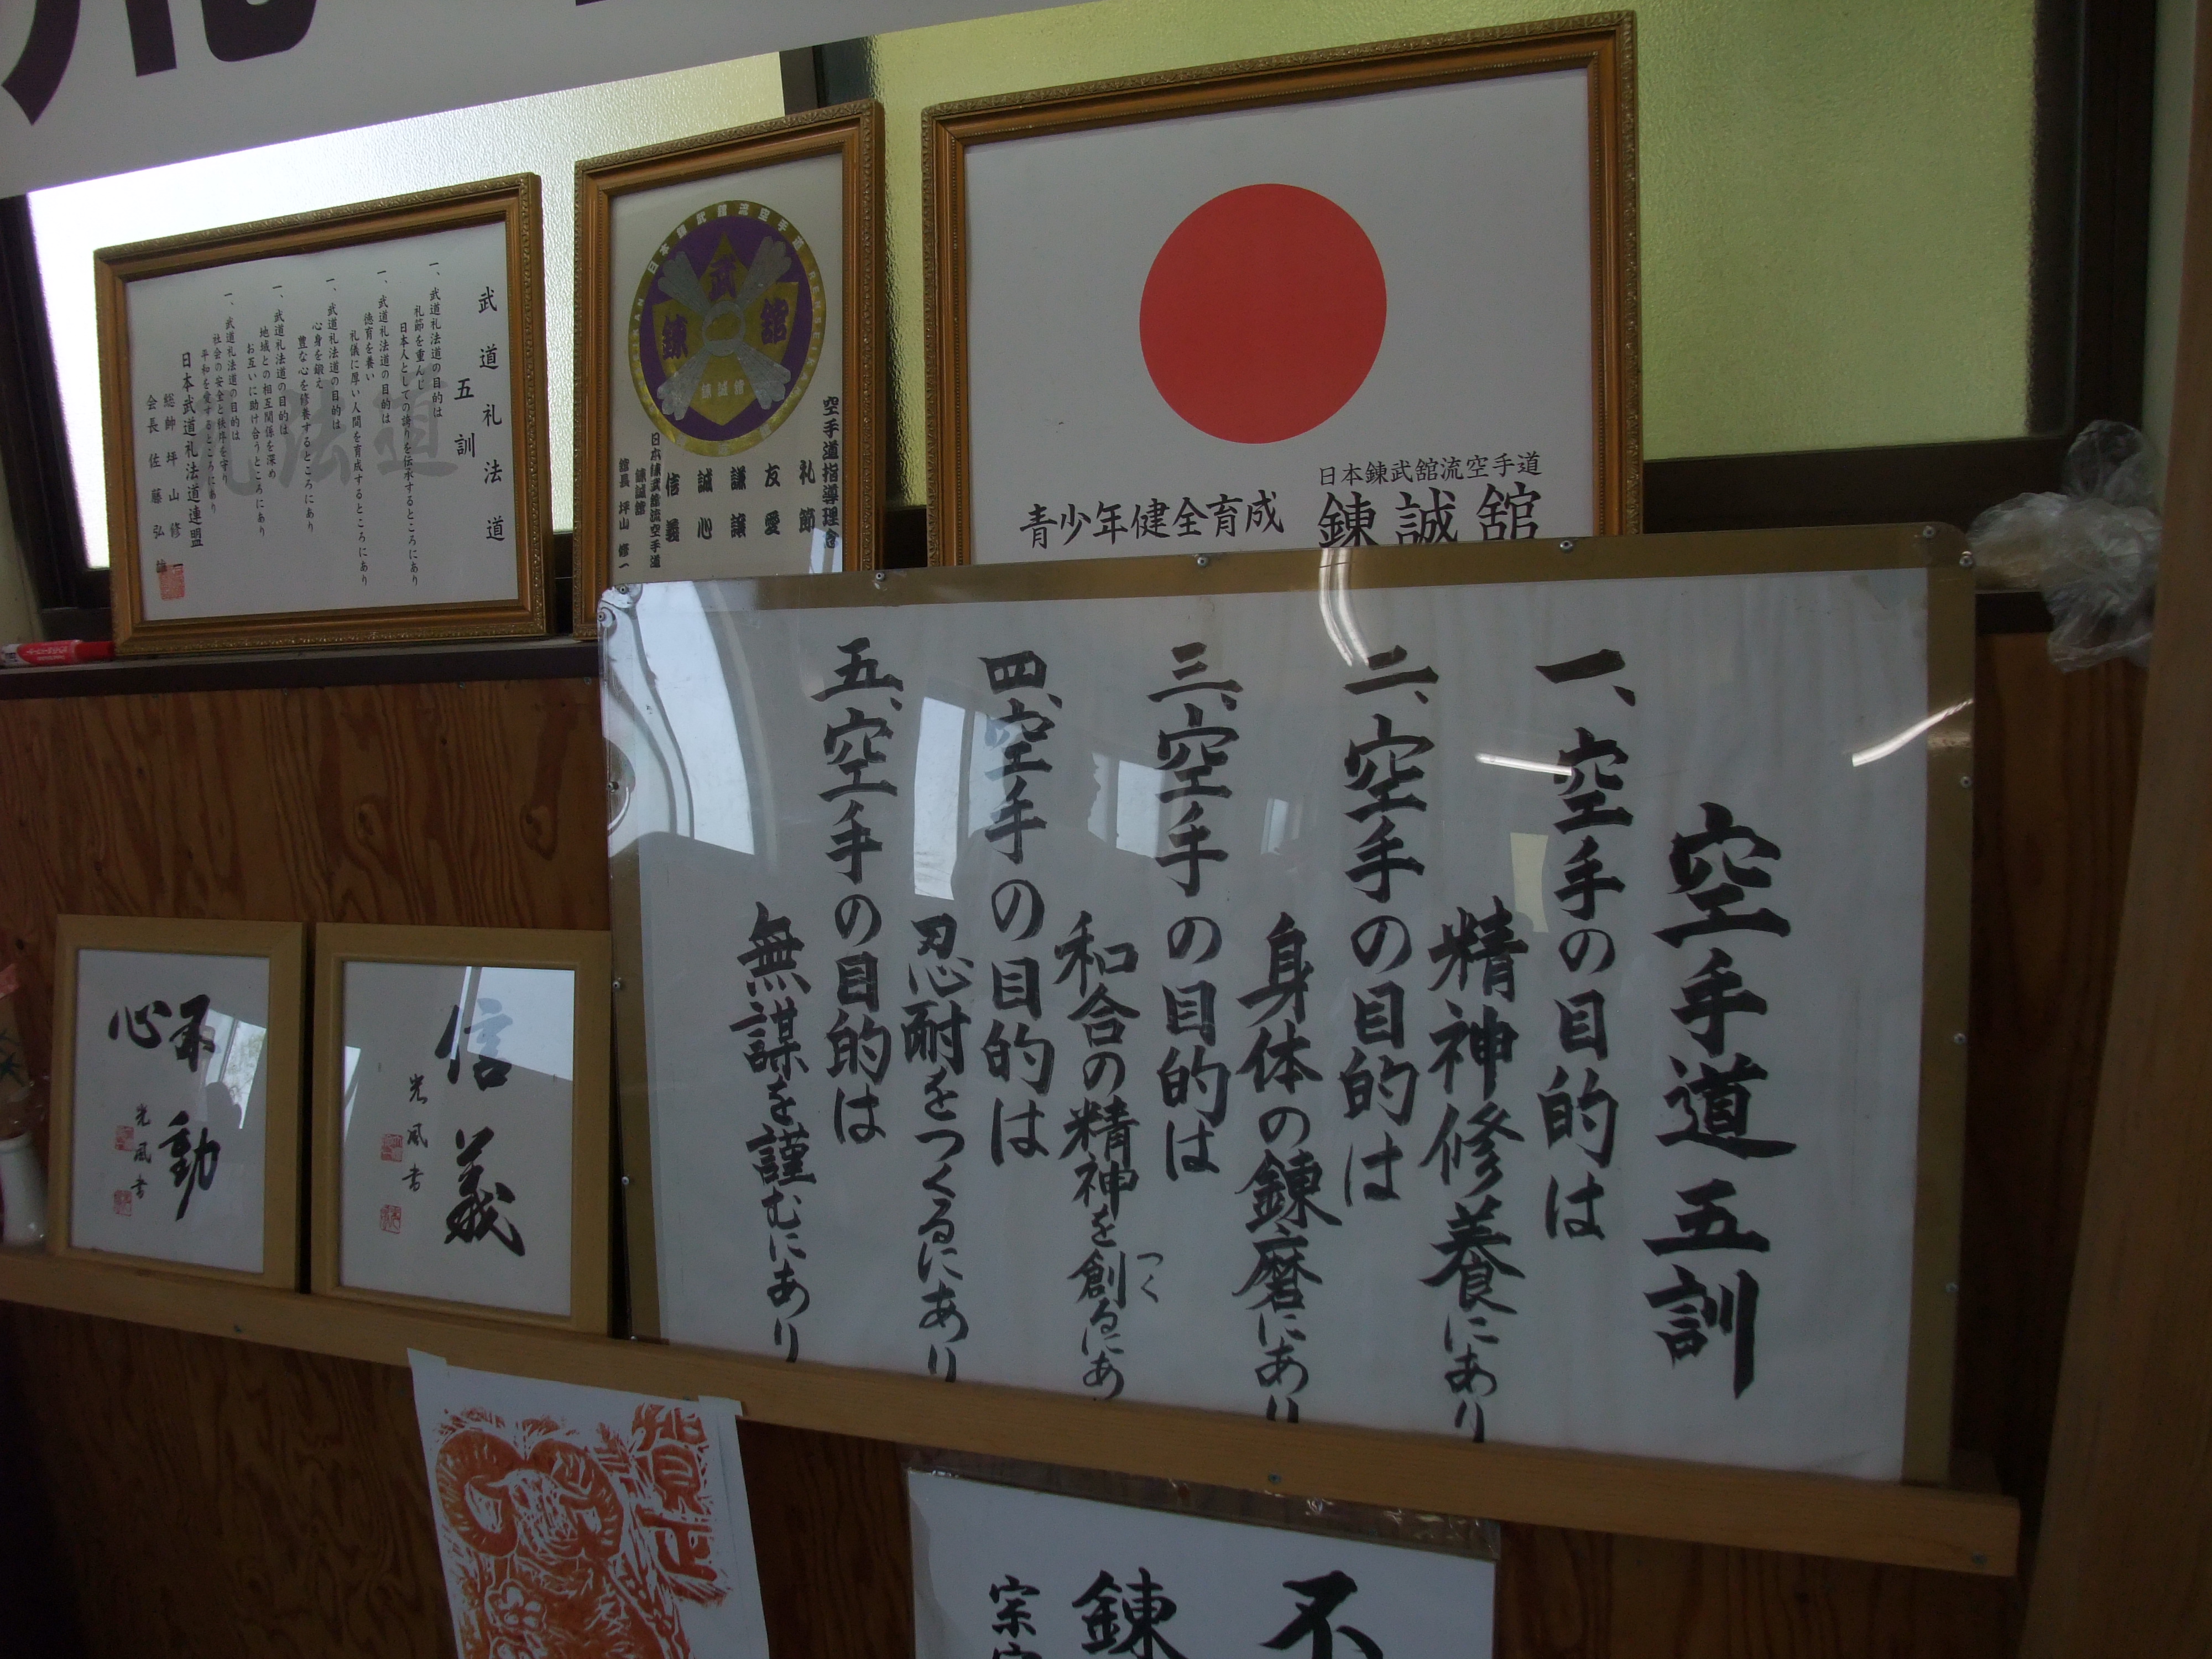 武道礼法道
五訓
一、武道礼法道の目的は
礼節を重んじ
日本人としての誇りを伝承するところにあり
一、武道礼法道の目的は
徳育を養い
礼儀に厚い人間を育成するところにあり
一、武道礼法道の目的は
心身を鍛え
豊な心を修養するところにあり
一、武道礼法道の目的は
地域との相互関係を深め
お互いに助け合うところにあり
一、武道礼法道の目的は
社会の安全と秩序を守り
平和を愛するところにあり
日本武道礼法道連盟
総帥 坪山修一
会長 佐藤弘雄
礼法道
日本錬武舘流空手道 RENSEIKAN
武
錬 舘
錬誠舘
空手道指導理念
礼節
友愛
謙譲
誠心
信義
日本錬武舘流空手道
錬誠舘
舘長 坪山修一
日本錬武舘流空手道
錬誠舘
青少年健全育成
空手道五訓
一、空手の目的は
精神修養にあり
二、空手の目的は
身体の錬磨にあり
三、空手の目的は
和合の精神を創るにあ
つく
四、空手の目的は
忍耐をつくるにあり
五、空手の目的は
無謀を謹むにあり
信義
光風書
不動
心
光風書
賀正
不
錬
宗